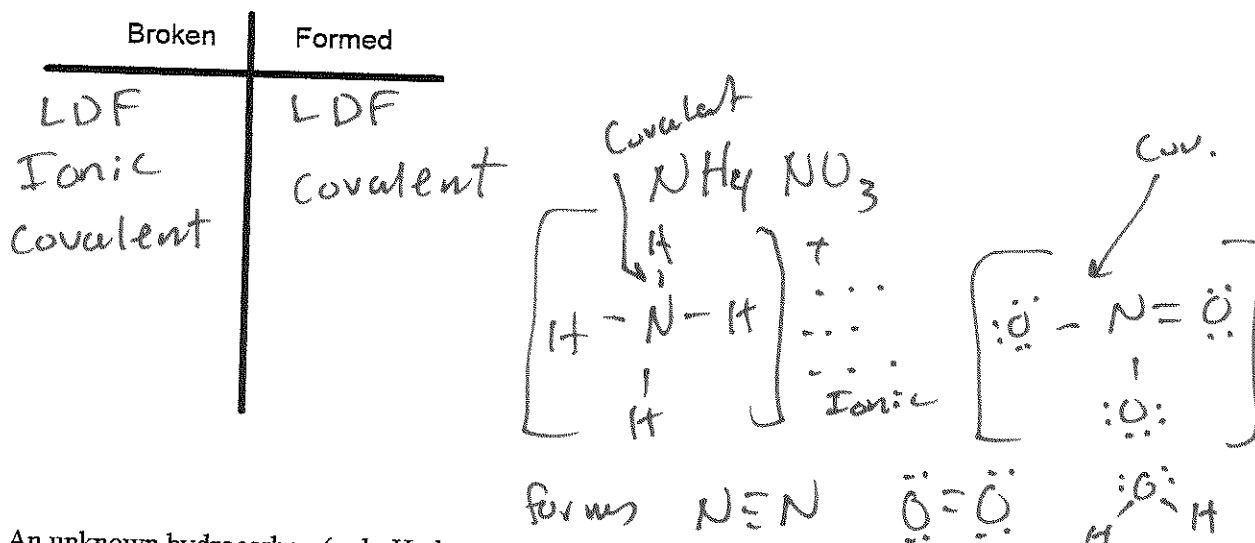 Broken Formed
LDF LDF
Ionic Covalent
Covalent
Covalent
NH4 NO3
Cov.
H
H - N - H
H
+
Ionic
:Ö - N = Ö
:O:
forms N≡N Ö=Ö :O:
H H
An unknown hydrocarbon